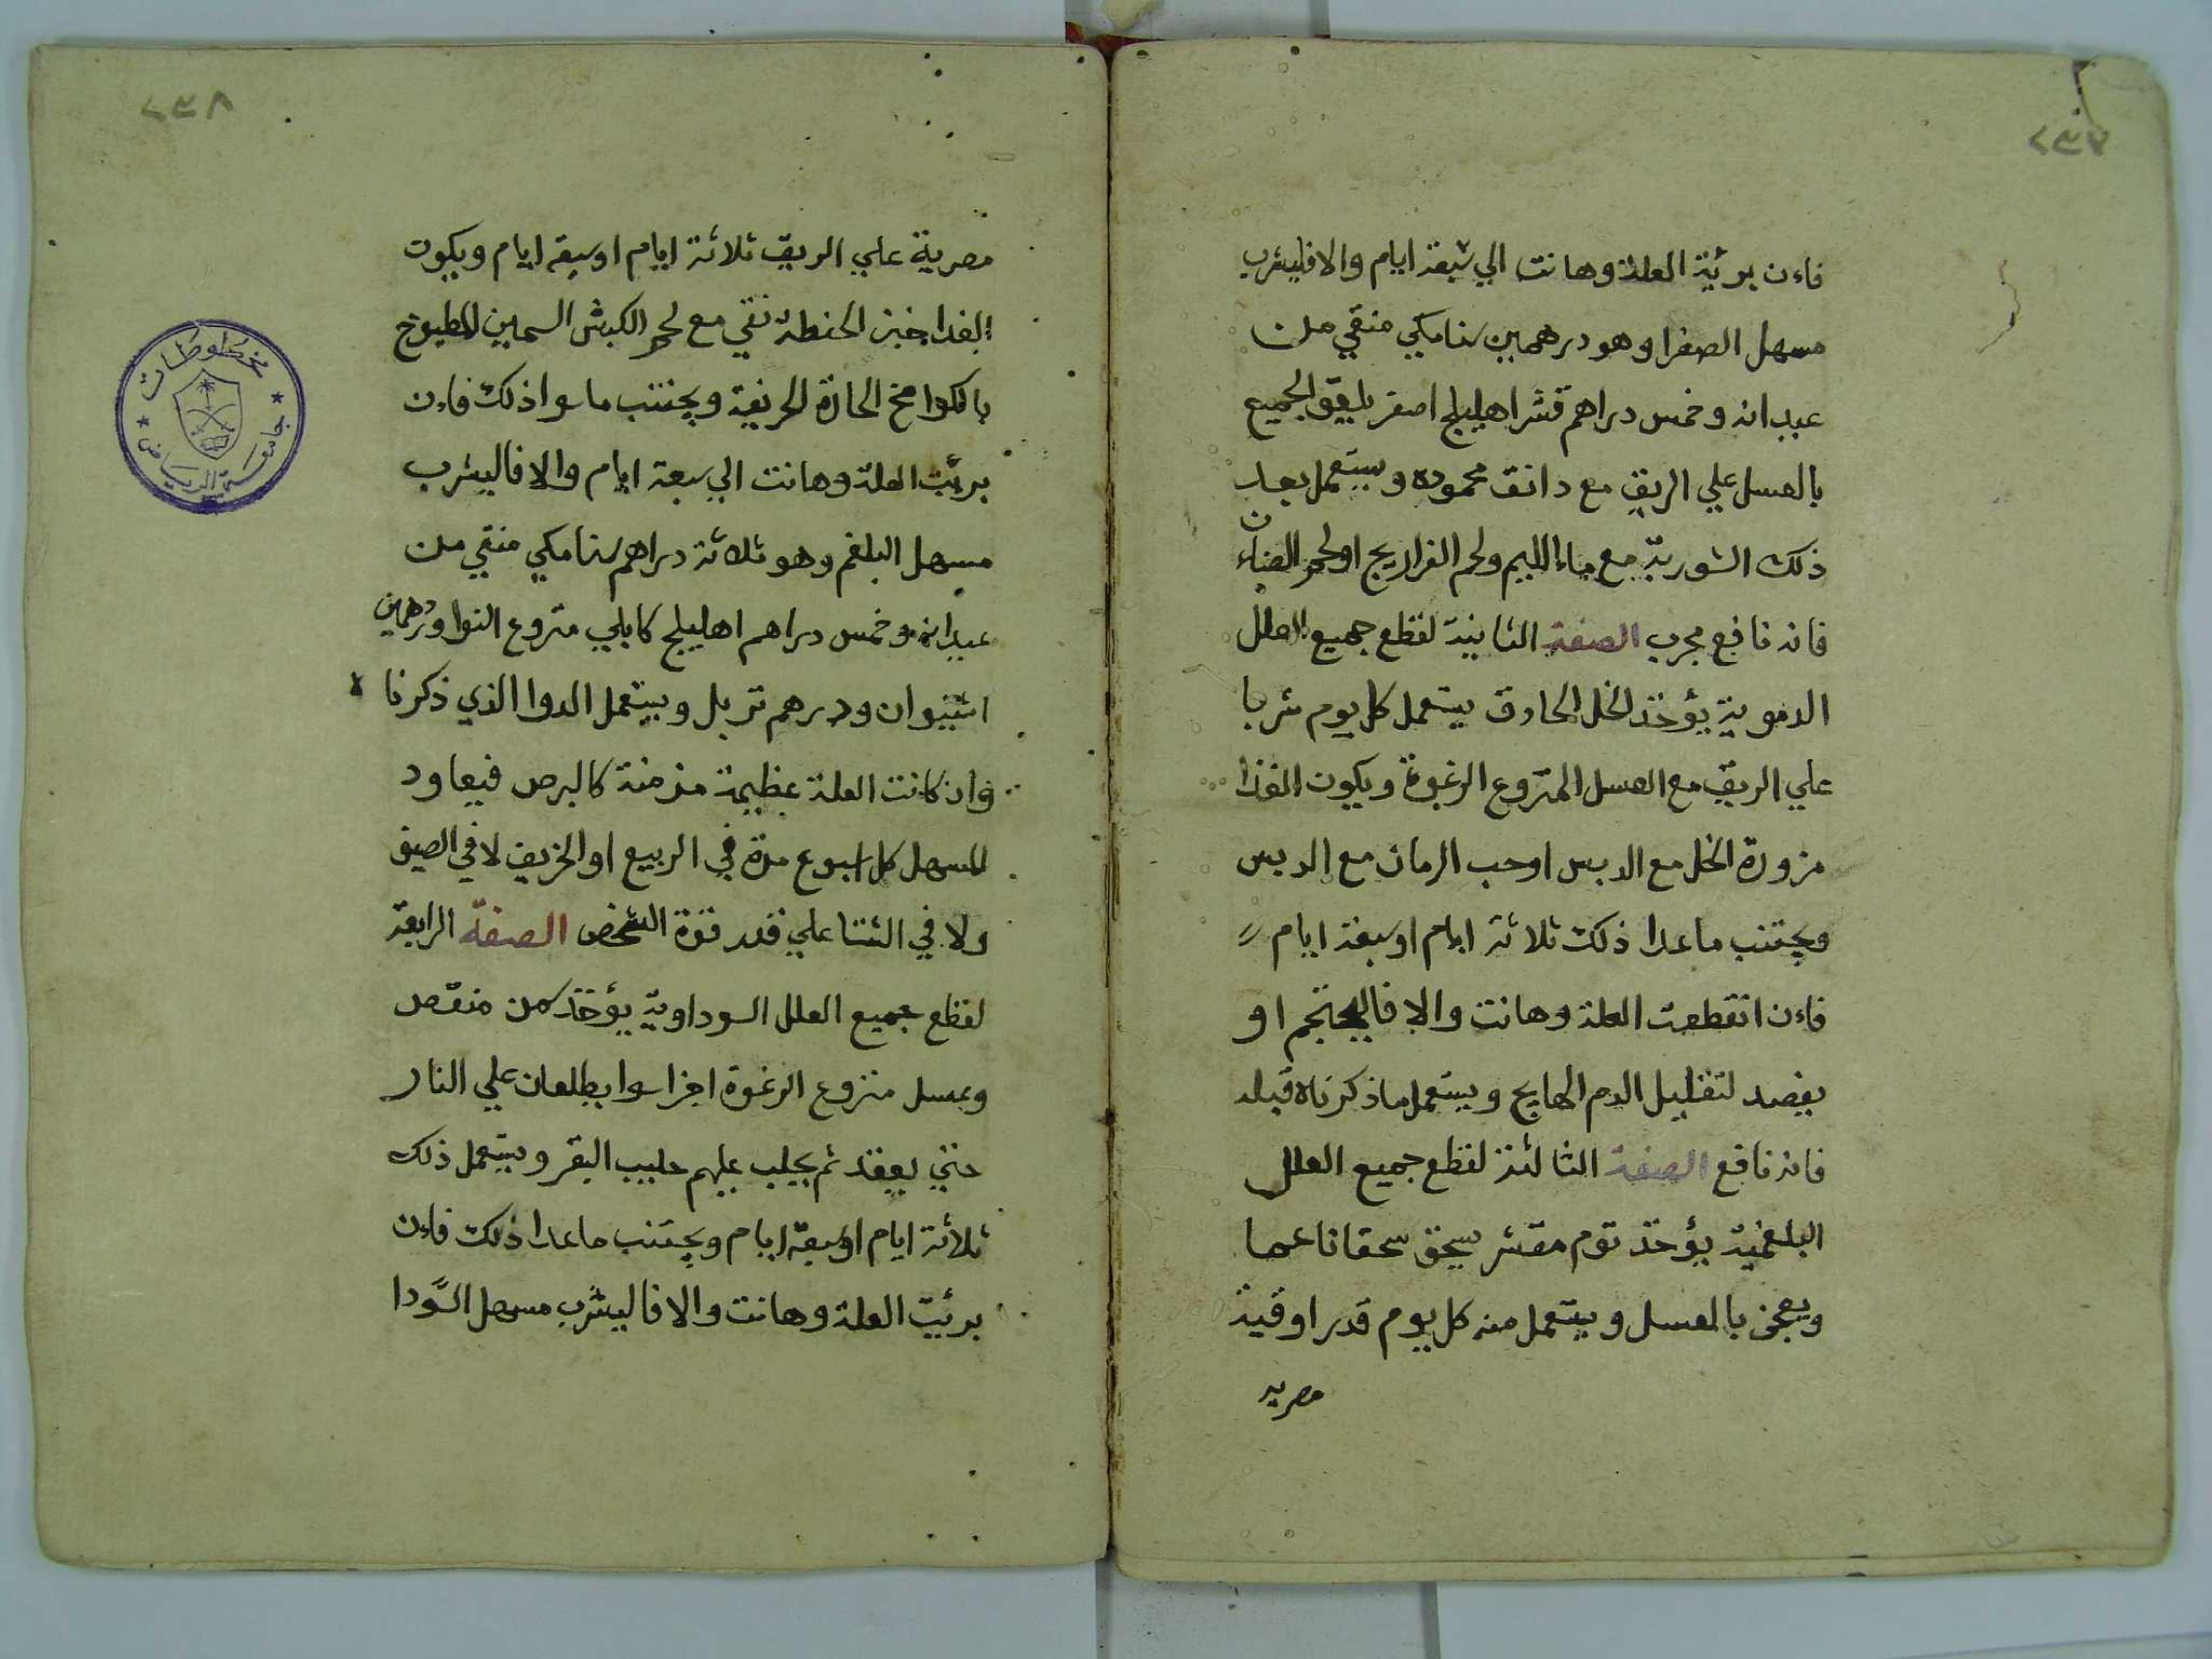 ٢٣٧
فاءن برئية العلة وهانت الي سبعة ايام والا فليشرب
مسهل الصفرا وهو درهمين سنامكي منقي من
عيدانه وخمس دراهم قشر اهليلج اصفر يلعق الجميع
بالعسل علي الريق مع دانق محموده ويستعمل بعد
ذلك الشوربة مع ماء الليم ولحم الفراريج او لحم الضاءن
فانه نافع مجرب الصفة الثانية لقطع جميع العلل
الدموية يؤخذ الخل الحاذق يستعمل كل يوم شربا
علي الريق مع العسل المتروع الرغوة ويكون الغذا
مزورة الخل مع الدبس او حب الرمان مع الدبس
ويجتنب ما عدا ذلك ثلاثة ايام او سبعة ايام
فاءن انقطعت العلة وهانت والا فاليحتجم او
يفصد لتقليل الدم الهايج ويستعمل ما ذكرناه قبله
فانه نافع الصفة الثالثة لقطع جميع العلل
البلغمية يؤخذ توم مقشر يسحق سحقا ناعما
ويعجن بالعسل ويستعمل منه كل يوم قدر اوقية
مصرية
٢٣٨
مصرية علي الريق ثلاثة ايام او سبعة ايام ويكون
الغدا خبز الحنطة نقي مع لحم الكبش السمين المطبوخ
بالكوامخ الحارة الحريفة ويجتنب ما سوا ذلك فاءن
برئت العلة وهانت الي سبعة ايام والا فاليشرب
مسهل البلغم وهو ثلاثة دراهم سنامكي منقي من
عيدانه وخمس دراهم اهليلج كابلي متروع النوا ودرهمين
ودرهم تربل ويستعمل الدوا الذي ذكرنا
وان كانت العلة عظيمة مزمنة كالبرص فيعاود
للسهل كل اسبوع مرة في الربيع او الخريف لا في الصيف
ولا في الشتا علي قدر قوة الشخص الصفة الرابعة
لقطع جميع العلل السوداوية يؤخذ سمن منقص
وعسل منزوع الرغوة اجزا سوا يطلعان علي النار
حتي يعقد ثم يحلب عليهم حليب البقر ويستعمل ذلك
ثلاثة ايام او سبعة ايام ويجتنب ما عدا ذلك فاءن
برئيت العلة وهانت والا فاليشرب مسهل السودا
مخطوطات
جامعة الرياض